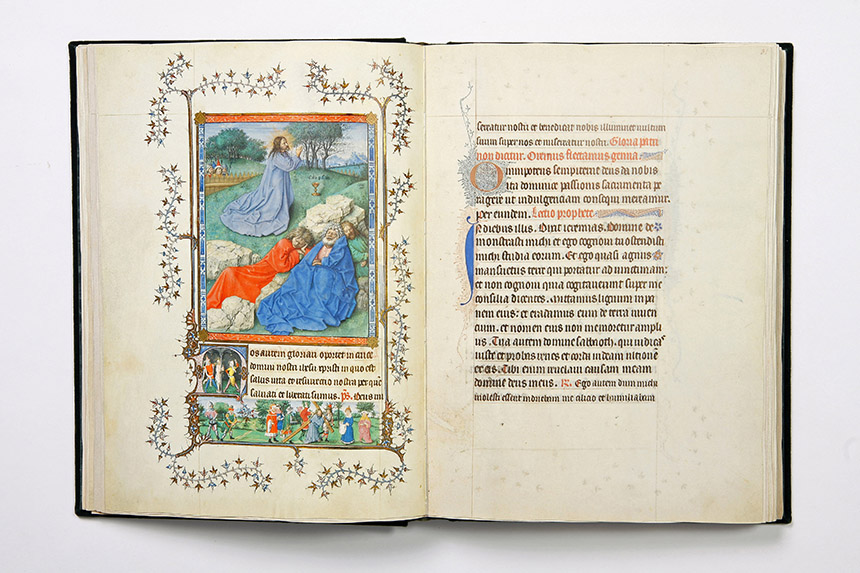 os autem gloriari oportet in cruce
domini nostri ihesu xpristi in quo est
salus vita et resurrectio nostra per quē
salvati et liberati sumus. ps. Deus mi
sereatur nostri et benedicat nobis illuminet vultum
suum super nos et misereatur nostri. Gloria patri
non dicitur. Oremus flectamus genua
Omnipotens sempiterne deus da nobis
ita dominice passionis sacramenta pe
ragere ut indulgenciam consequi mereamur.
per eundem. Lectio prophete
In diebus illis. Dixit ieremias. Domine de
monstrasti michi et ego cognovi tu ostendisti
michi studia eorum. Et ego quasi agnus
mansuetus qui portatur ad victimam:
et non cognovi quia cogitaverunt super me
consilia dicentes. Mittamus lignum in pa
nem eius: et eradamus eum de terra viven
cium. et nomen eius non memoretur ampli
us. Tu autem domine sabaoth. qui iudicas
iuste et probas renes et corda videam ultionem
ex eis. Tibi enim revelavi causam meam
domine deus meus. R. Ego autem dum michi
molesti essent induebam me cilicio et humiliabam